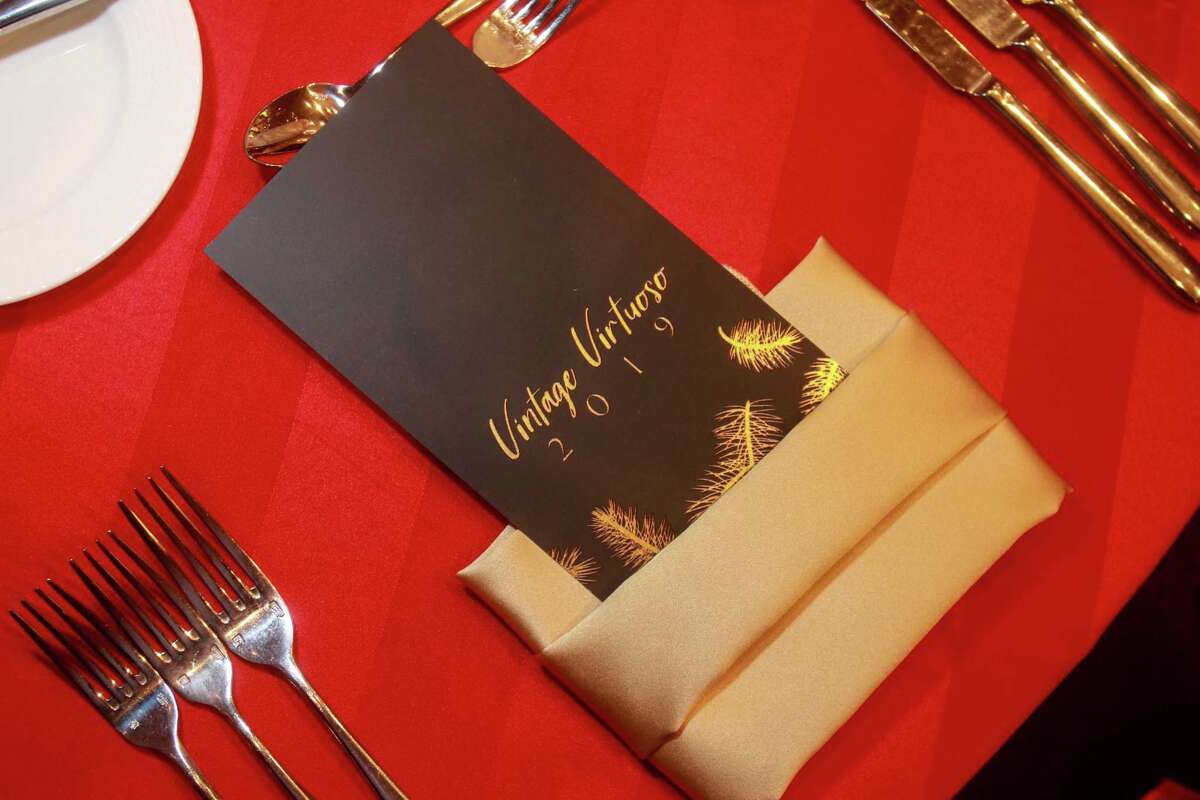 Vintage Virtuoso
2019